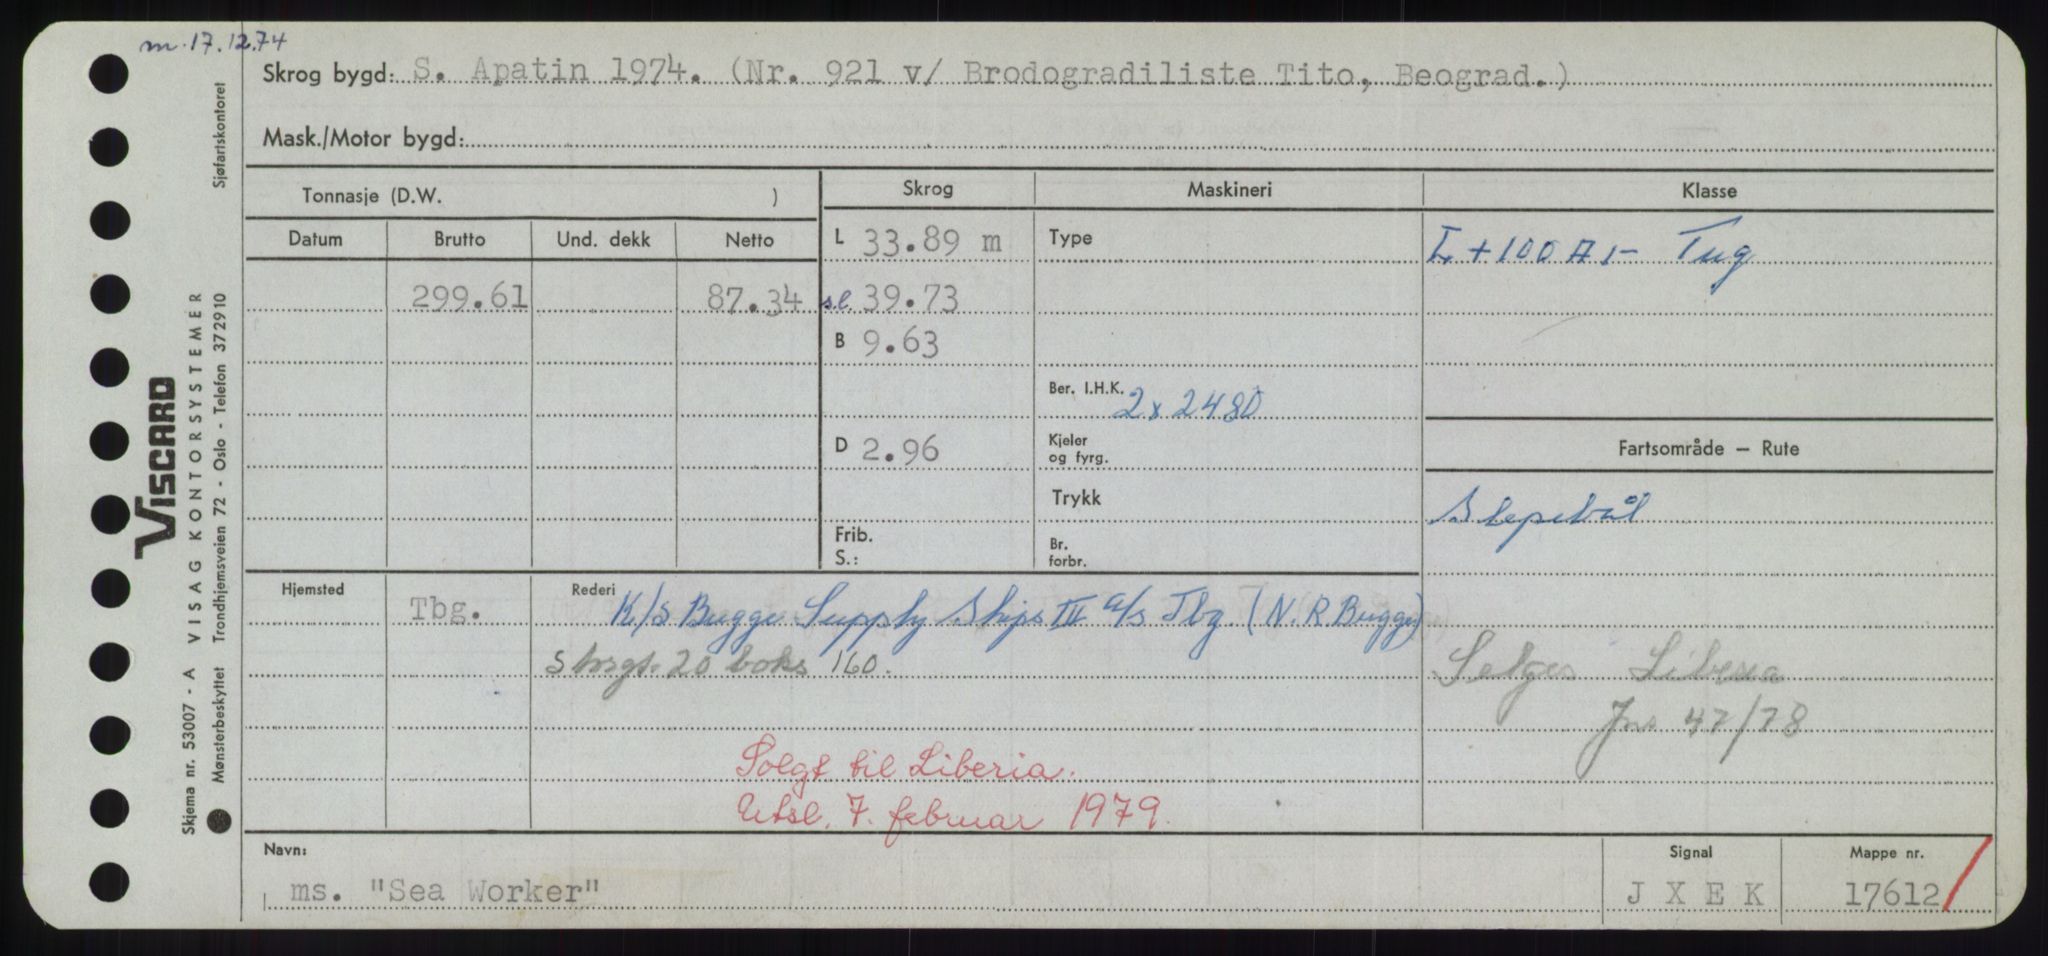 m. 17.12.74
Skrog bygd: S. Apatin 1974. (Nr. 921 v/ Brodogradiliste Tito, Beograd.)
Mask./Motor bygd:
Tonnasje (D.W. )
Skrog
Maskineri
Klasse
Datum
Brutto
Und. dekk
Netto
L 33.89 m
Type
+ 100 A 1- Tug
299.61
87.34
s.l. 39.73
B 9.63
Ber. I.H.K. 2 x 2480
D 2.96
Kjeler
og fyrg.
Fartsområde — Rute
Trykk
Slepebåt
Frib.
S.:
Br.
forbr.
Hjemsted
Tbg.
Rederi
K/S Bugge Supply Ships III a/s Tbg (N. R Bugge)
Storgt. 20 boks 160.
Selges Liberia
Jnr 47/78
Solgt til Liberia.
Utsl. 7. februar 1979.
Navn:
ms. "Sea Worker"
Signal
J X E K
Mappe nr.
17612
Skjema nr. 53007 - A VISAG KONTORSYSTEMER
Mønsterbeskyttet Trondhjemsveien 72 - Oslo - Telefon 372910
Sjøfartskontoret
VISCARD